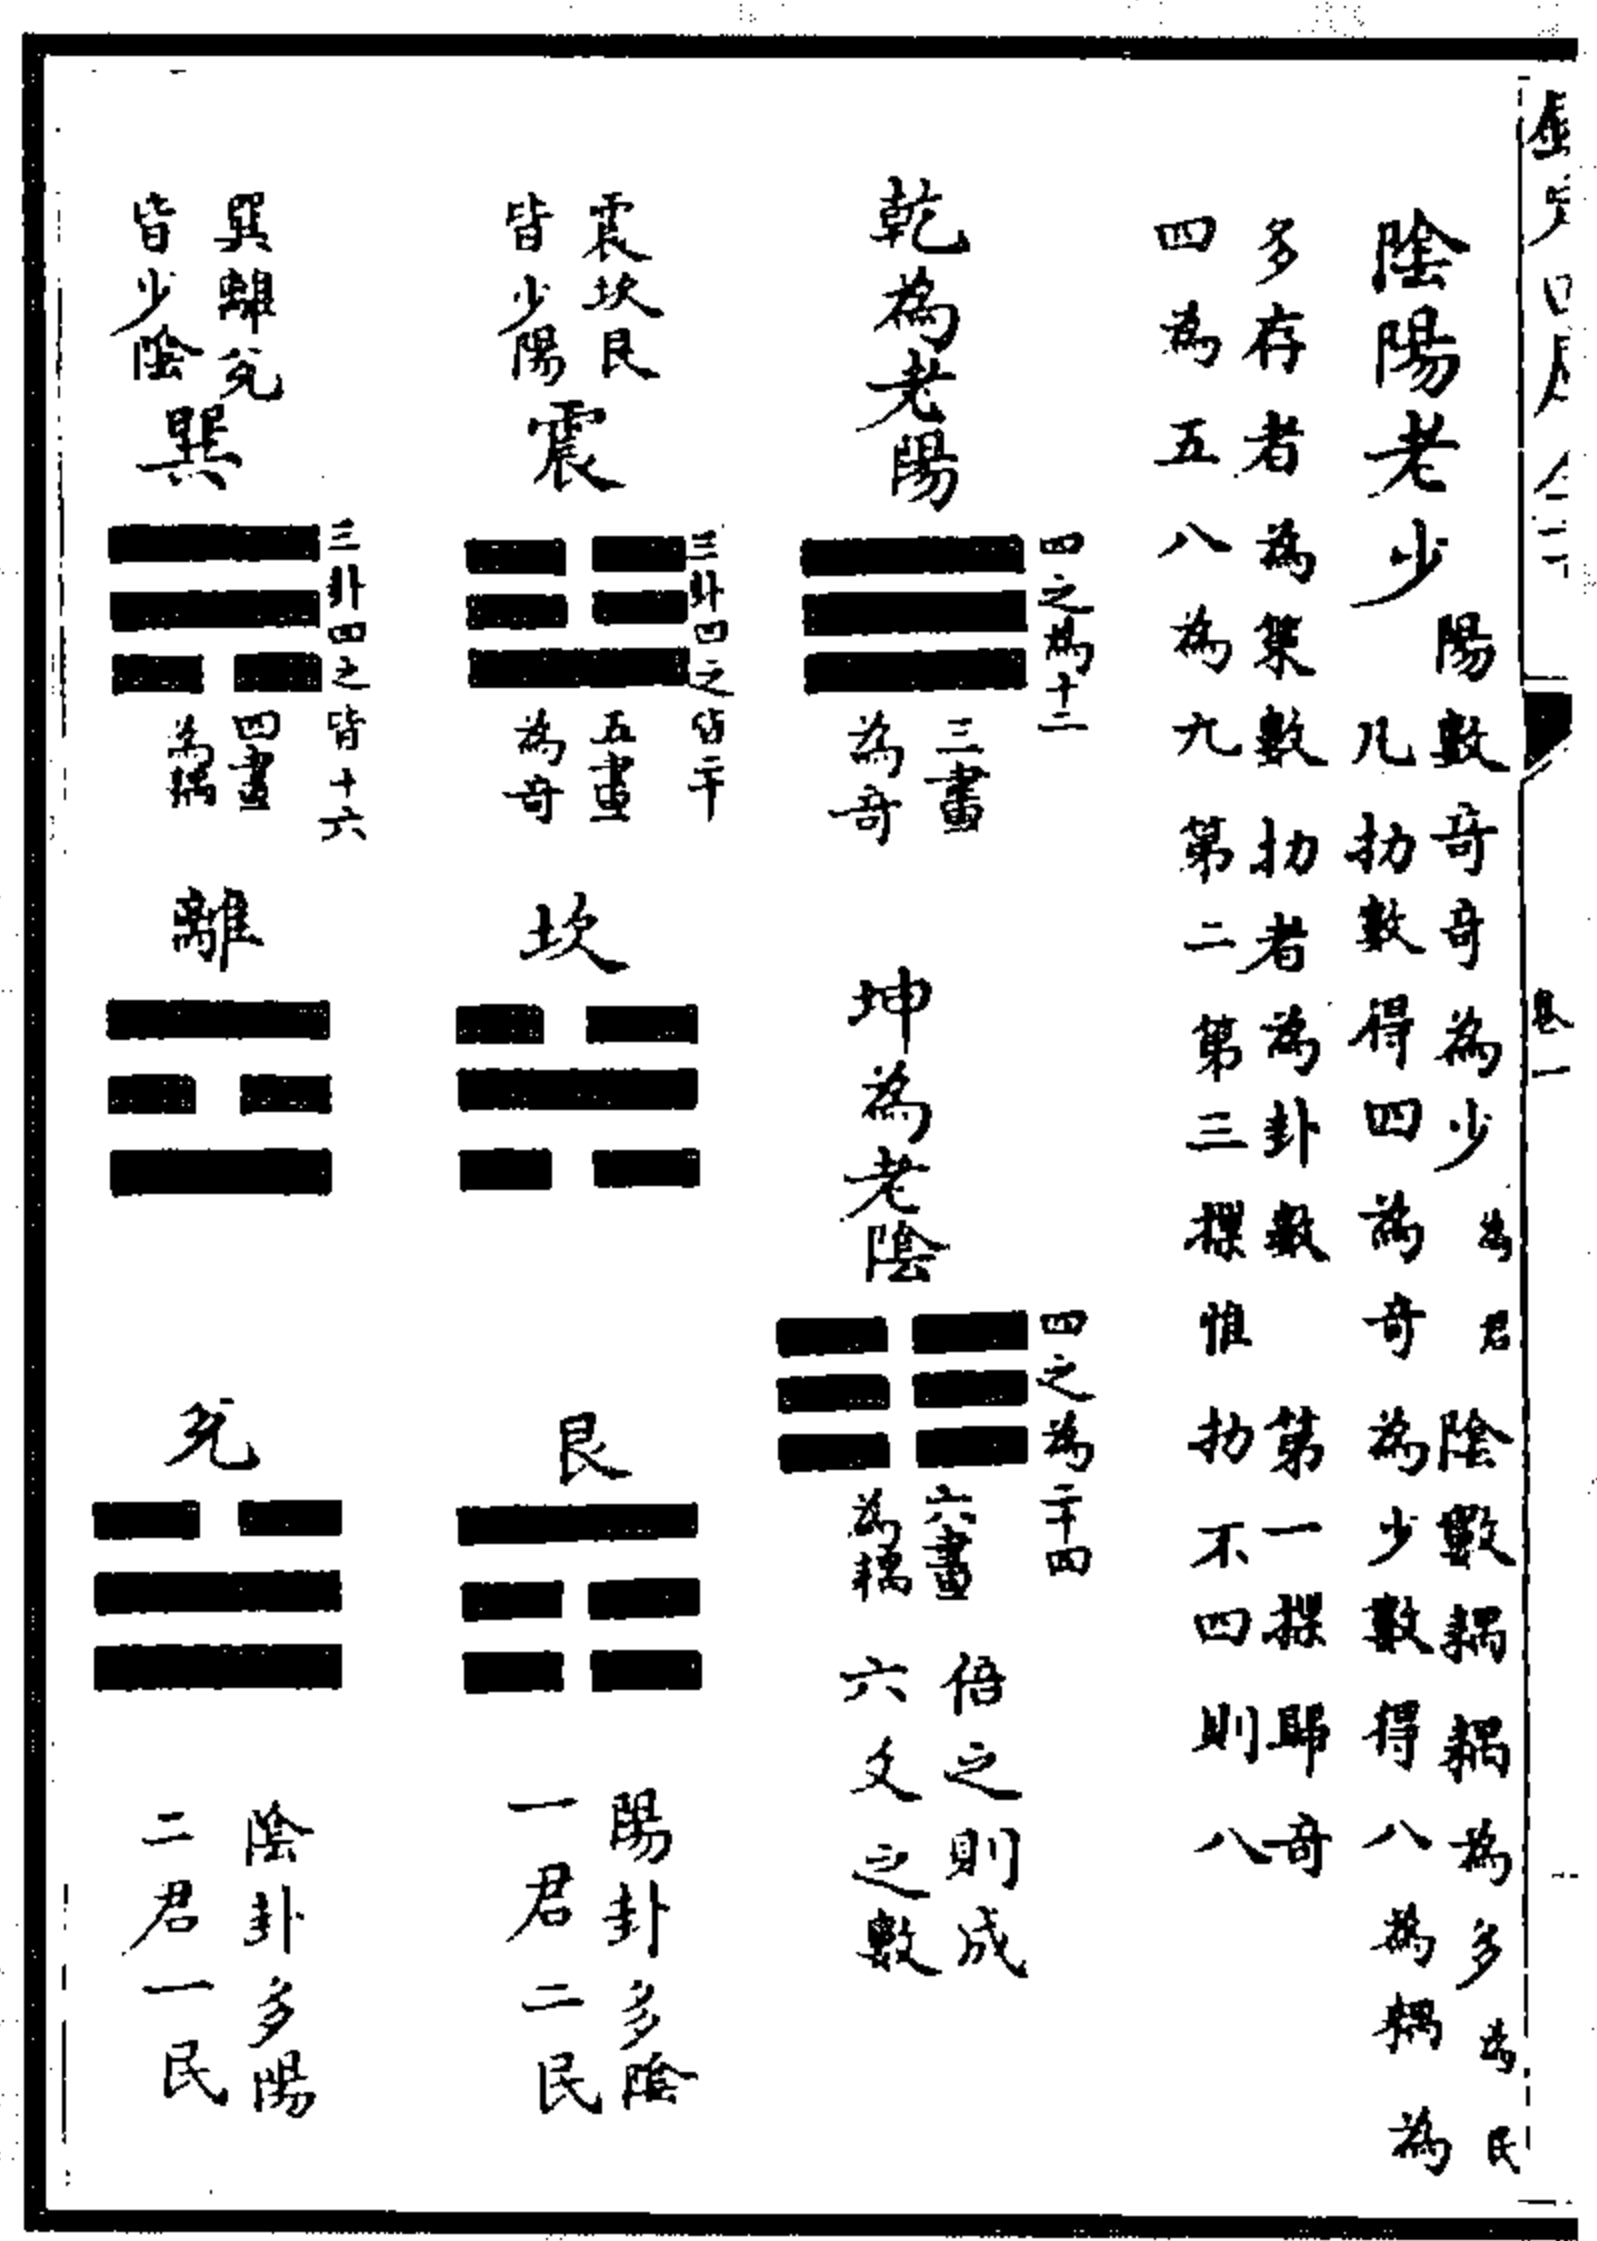 欽定四庫全書
卷一
陰陽老少
陽數奇奇為少為君陰數耦耦為多為民
凡扐數得四為奇奇為少數得八為耦為
多存者為策數扐者為卦數第一揲歸奇
四為五八為九第二第三揲惟扐不四則八
乾為老陽
四之為十二
三畫
為奇
坤為老陰
四之為二十四
六畫
為耦
倍之則成
六爻之數
震坎艮
皆少陽
震
三卦四之皆二十
五畫
為奇
坎
艮
陽卦多陰
一君二民
巽離兌
皆少陰
巽
三卦四之皆十六
四畫
為耦
離
兌
陰卦多陽
二君一民